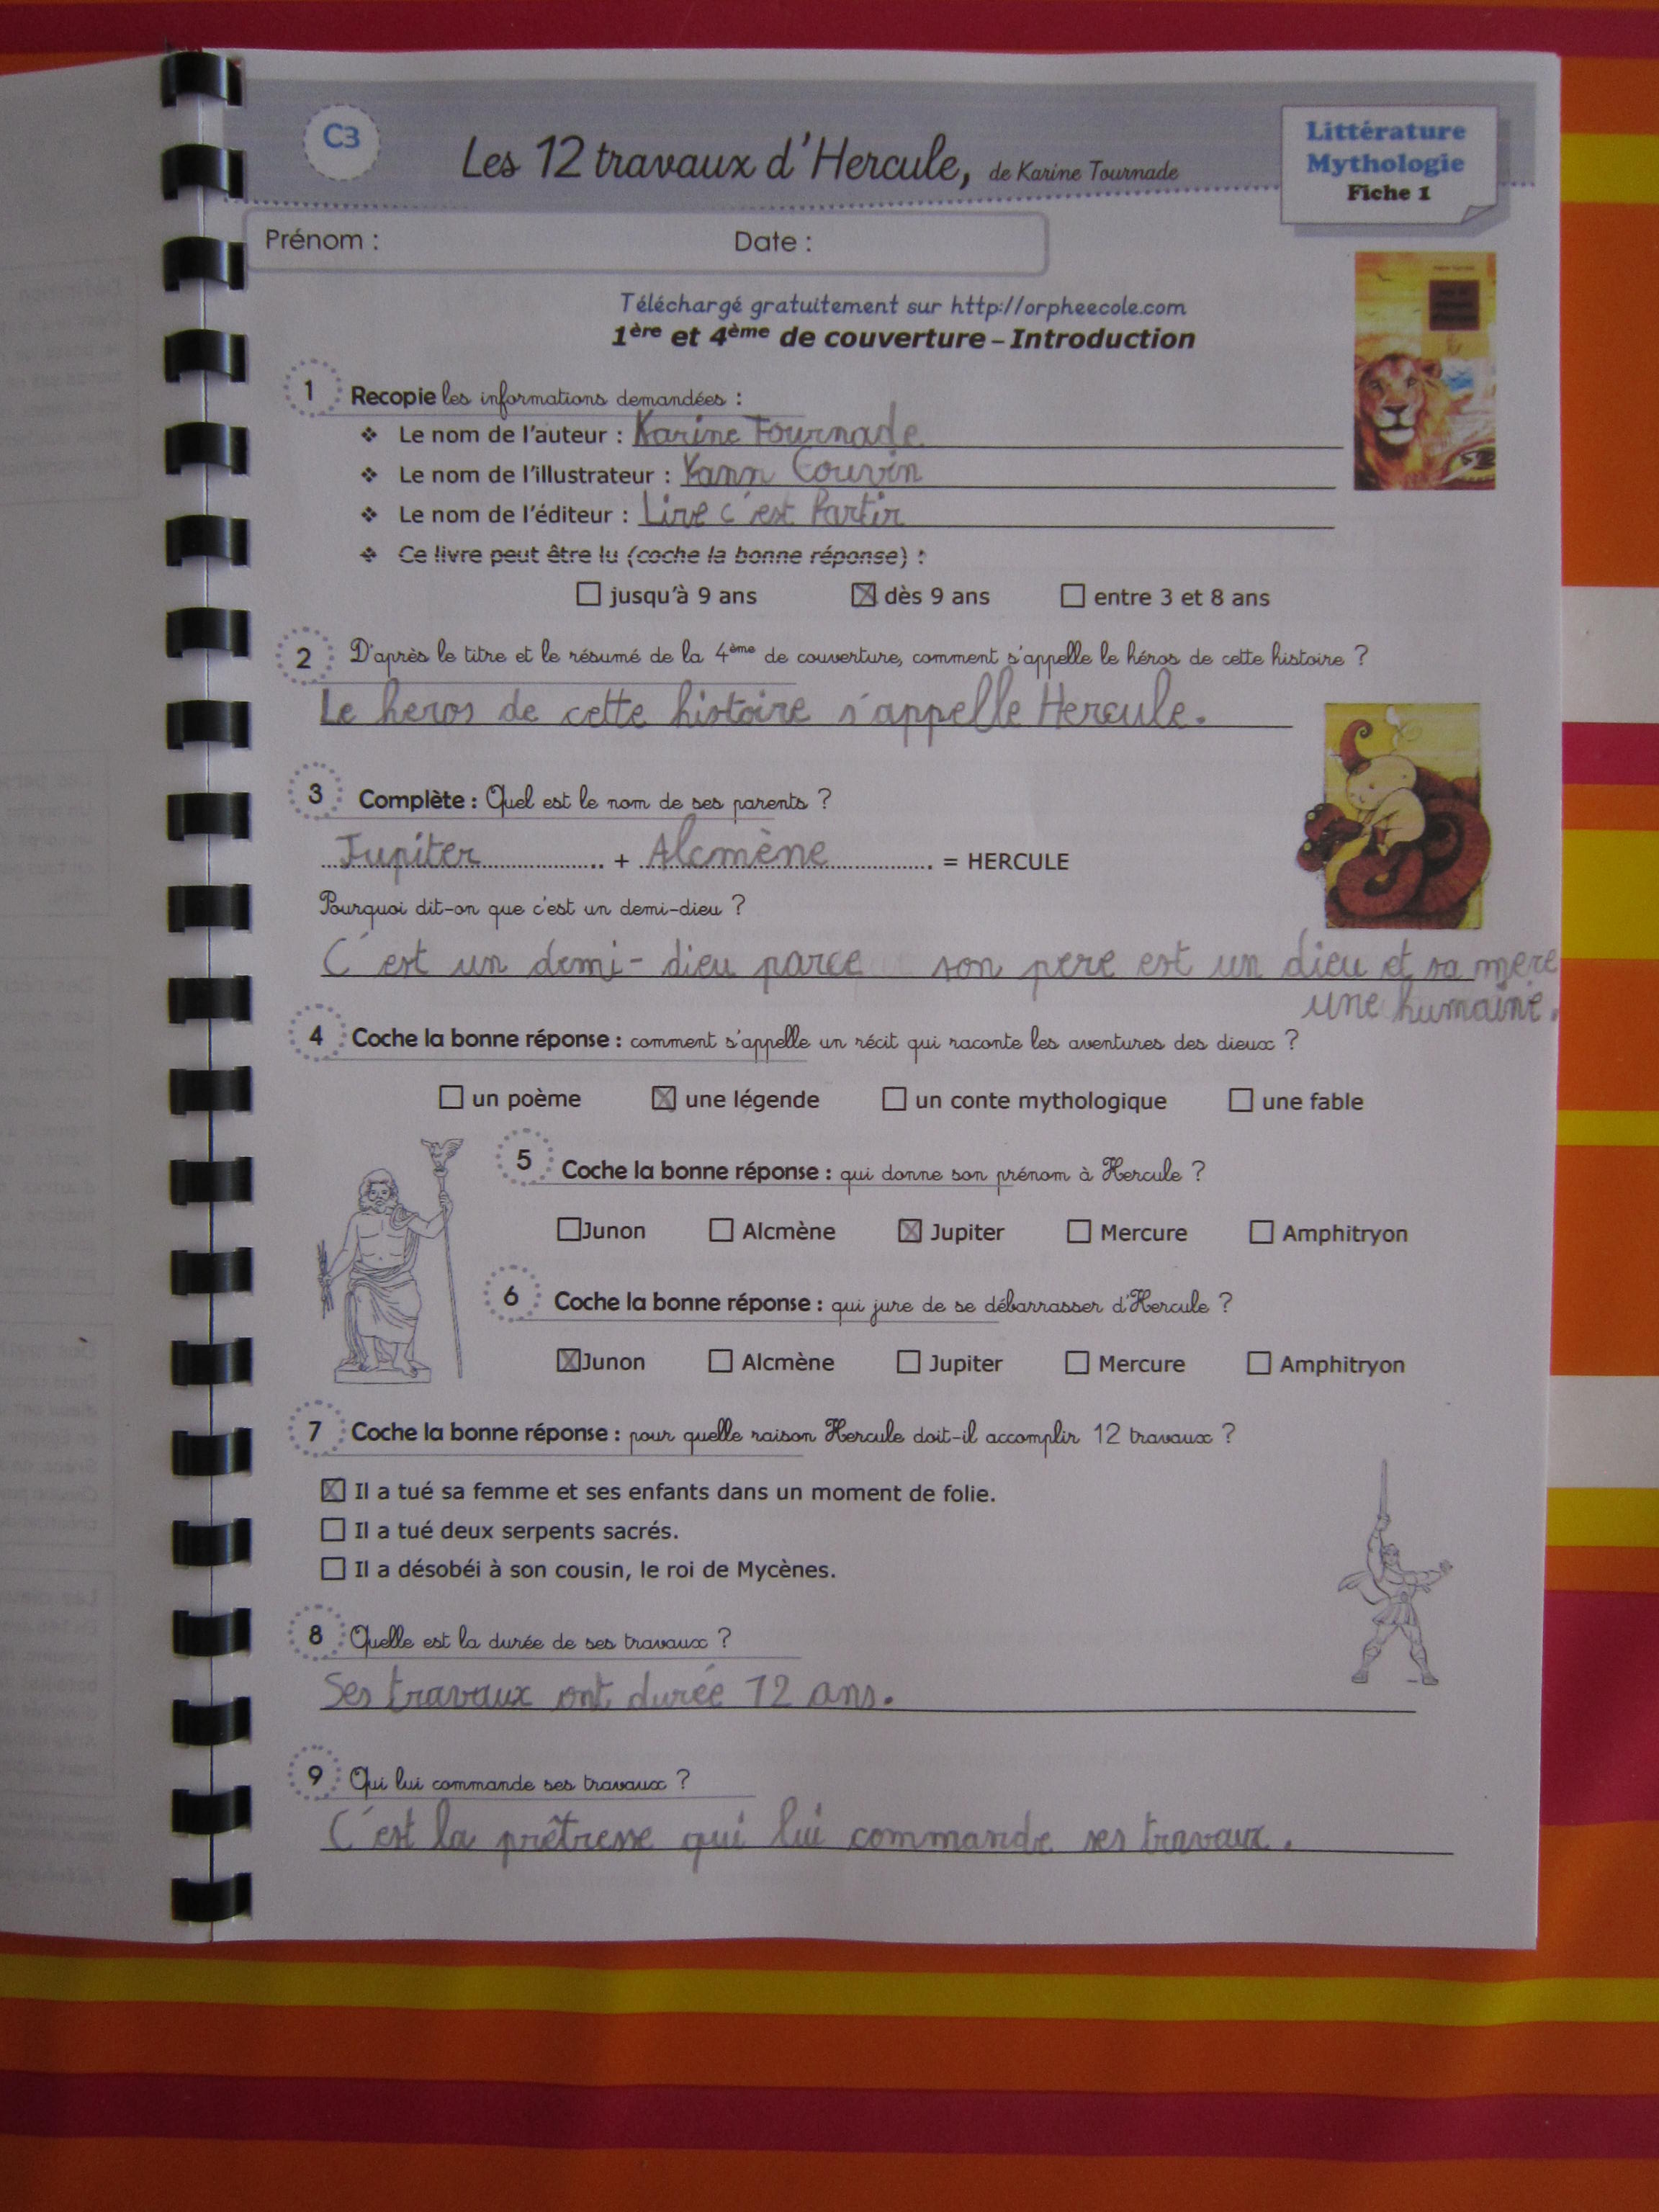 C3
Les 12 travaux d'Hercule, de Karine Tournade
Littérature
Mythologie
Fiche 1
Prénom :
Date :
Téléchargé gratuitement sur http://orpheecole.com
1ère et 4ème de couverture – Introduction
1 Recopie les informations demandées :
❖ Le nom de l'auteur : Karine Tournade
❖ Le nom de l'illustrateur : Yann Couvin
❖ Le nom de l'éditeur : Lire c'est Partir
❖ Ce livre peut être lu (coche la bonne réponse) :
☐ jusqu'à 9 ans ☒ dès 9 ans ☐ entre 3 et 8 ans
2 D'après le titre et le résumé de la 4ème de couverture, comment s'appelle le héros de cette histoire ?
Le heros de cette histoire s'appelle Hercule.
3 Complète : Quel est le nom de ses parents ?
Jupiter + Alcmène = HERCULE
Pourquoi dit-on que c'est un demi-dieu ?
C'est un demi-dieu parce son pere est un dieu et sa mere
une humaine.
4 Coche la bonne réponse : comment s'appelle un récit qui raconte les aventures des dieux ?
☐ un poème ☒ une légende ☐ un conte mythologique ☐ une fable
5 Coche la bonne réponse : qui donne son prénom à Hercule ?
☐ Junon ☐ Alcmène ☒ Jupiter ☐ Mercure ☐ Amphitryon
6 Coche la bonne réponse : qui jure de se débarrasser d'Hercule ?
☒ Junon ☐ Alcmène ☐ Jupiter ☐ Mercure ☐ Amphitryon
7 Coche la bonne réponse : pour quelle raison Hercule doit-il accomplir 12 travaux ?
☒ Il a tué sa femme et ses enfants dans un moment de folie.
☐ Il a tué deux serpents sacrés.
☐ Il a désobéi à son cousin, le roi de Mycènes.
8 Quelle est la durée de ses travaux ?
Ses travaux ont durée 12 ans.
9 Qui lui commande ses travaux ?
C'est la prêtresse qui lui commande ses travaux.